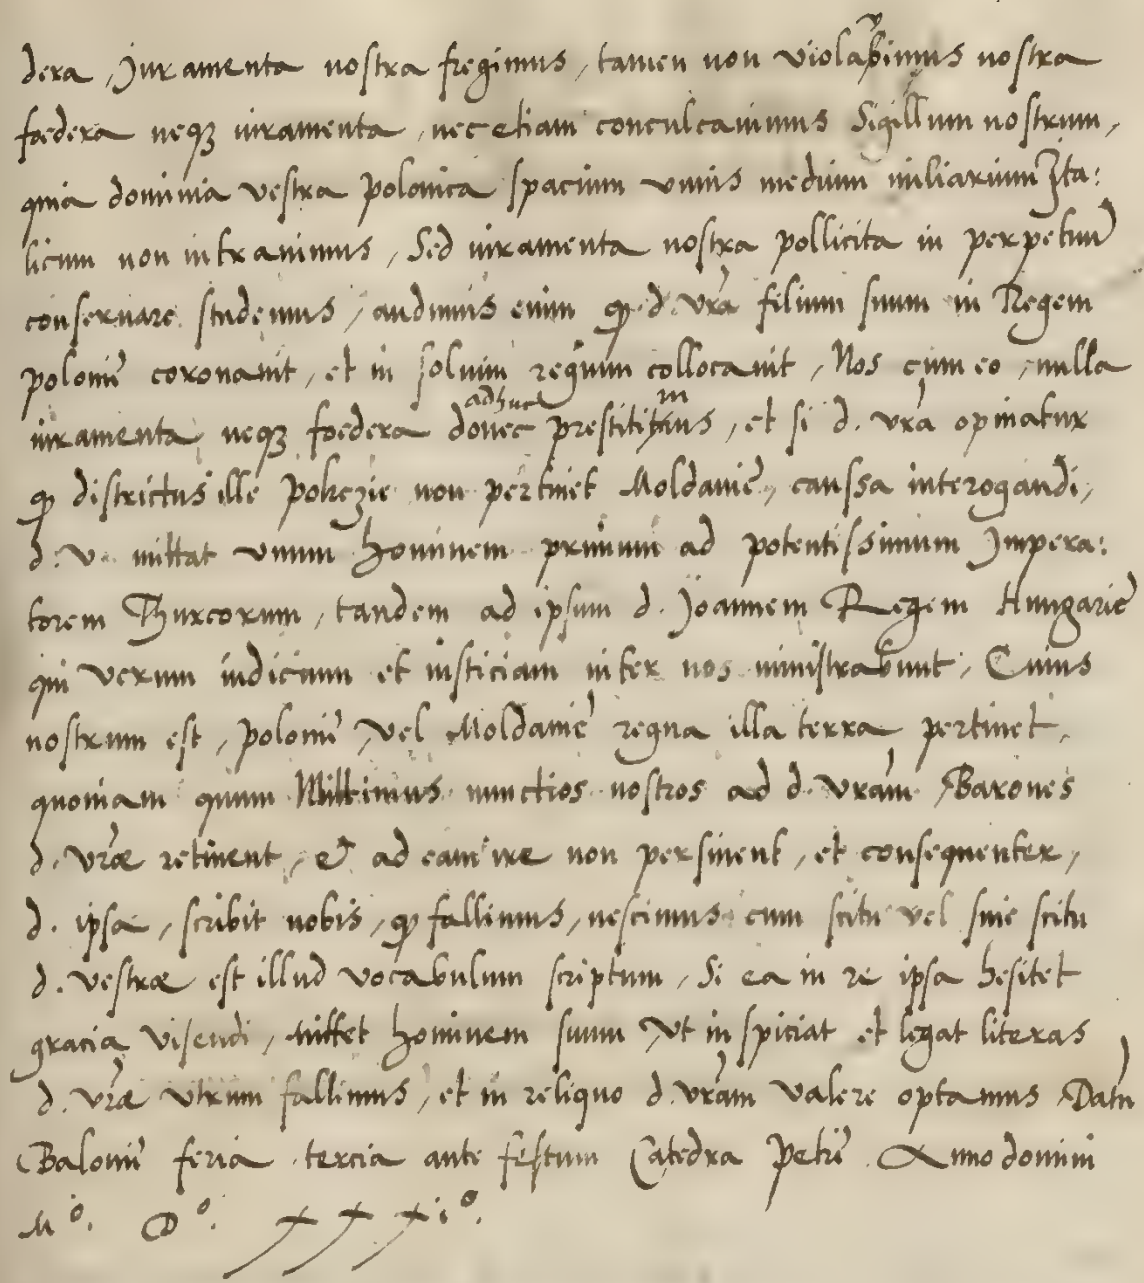 dera, Juramenta nostra fregimus, tamen non violavimus nostra
foedera neqz iuramenta, nec etiam conculcavimus Sigillum nostrum,
quia dominia vestra polonica spacium unius medium miliarium Ita:
licum non intravimus, Sed iuramenta nostra pollicita in perpetuu
conservare studemus, audivimus enim q d. vra filium suum in Regem
polonie coronavit, et in solium regnum collocavit, Nos cum eo, nulla
iuramenta neqz foedera adhuc donec prestitimus, et si d. vra opinatur
q districtus ille pokczie non pertinet Moldavie, caussa interogandi,
d. v. mittat unum hominem primum ad potentissimum Impera:
torem Thurcorum, tandem ad ipsum d. Joannem Regem Hungarie
qui verum iudicium et iusticiam inter nos ministrabunt, Cuius
nostrum est, polonie, vel Moldavie regna illa terra pertinet,
quoniam quum Mittimus nunctios nostros ad d. vram, Barones
d. vræ retinent, & ad eam ire non persinent, et consequenter,
d. ipsa, scribit nobis, q fallimus, nescimus cum scitu vel sine scitu
d. vestræ est illud vocabulum scriptum, Si ea in re ipsa hesitet
gracia visendi, mittet hominem suum, ut inspiciat et legat literas
d. vræ utrum fallimus, et in reliquo d. vram valere optamus, Datu
Balomie feria tercia ante festum Catedra Petri. Anno domini
M°. D°. xxxi°.